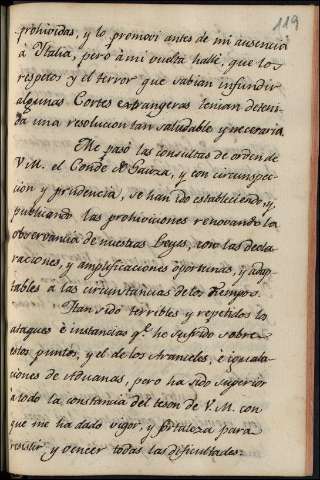 119
prohividas, y lo promoví antes de mi ausencia
á Ytalia, pero á mi vuelta hallé, que los
respetos y el terror que sabian infundir
algunas Cortes extrangeras tenian deteni-
da una resolucion tan saludable y necesaria.
Me pasó las consultas de orden de
V.M. el Conde de Gausa, y con circunspec-
cion y prudencia, se han ido estableciendo, y
publicando las prohiviciones renovando la
observancia de nuestras Leyes, con las decla-
raciones, y amplificaciones oportunas, y adap-
tables á las circunstancias de los tiempos.
Han sido terribles y repetidos lo
ataques é instancias q.e he sufrido sobre
estos puntos, y el de los Aranceles, é iguala-
ciones de Aduanas, pero ha sido superior
á todo la constancia del teson de V.M. con
que me ha dado vigor, y fortaleza para
resistir y vencer todas las dificultades.